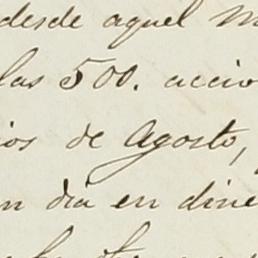 desde aquel m
las 500. accio
ios de Agosto,
n dia en dine